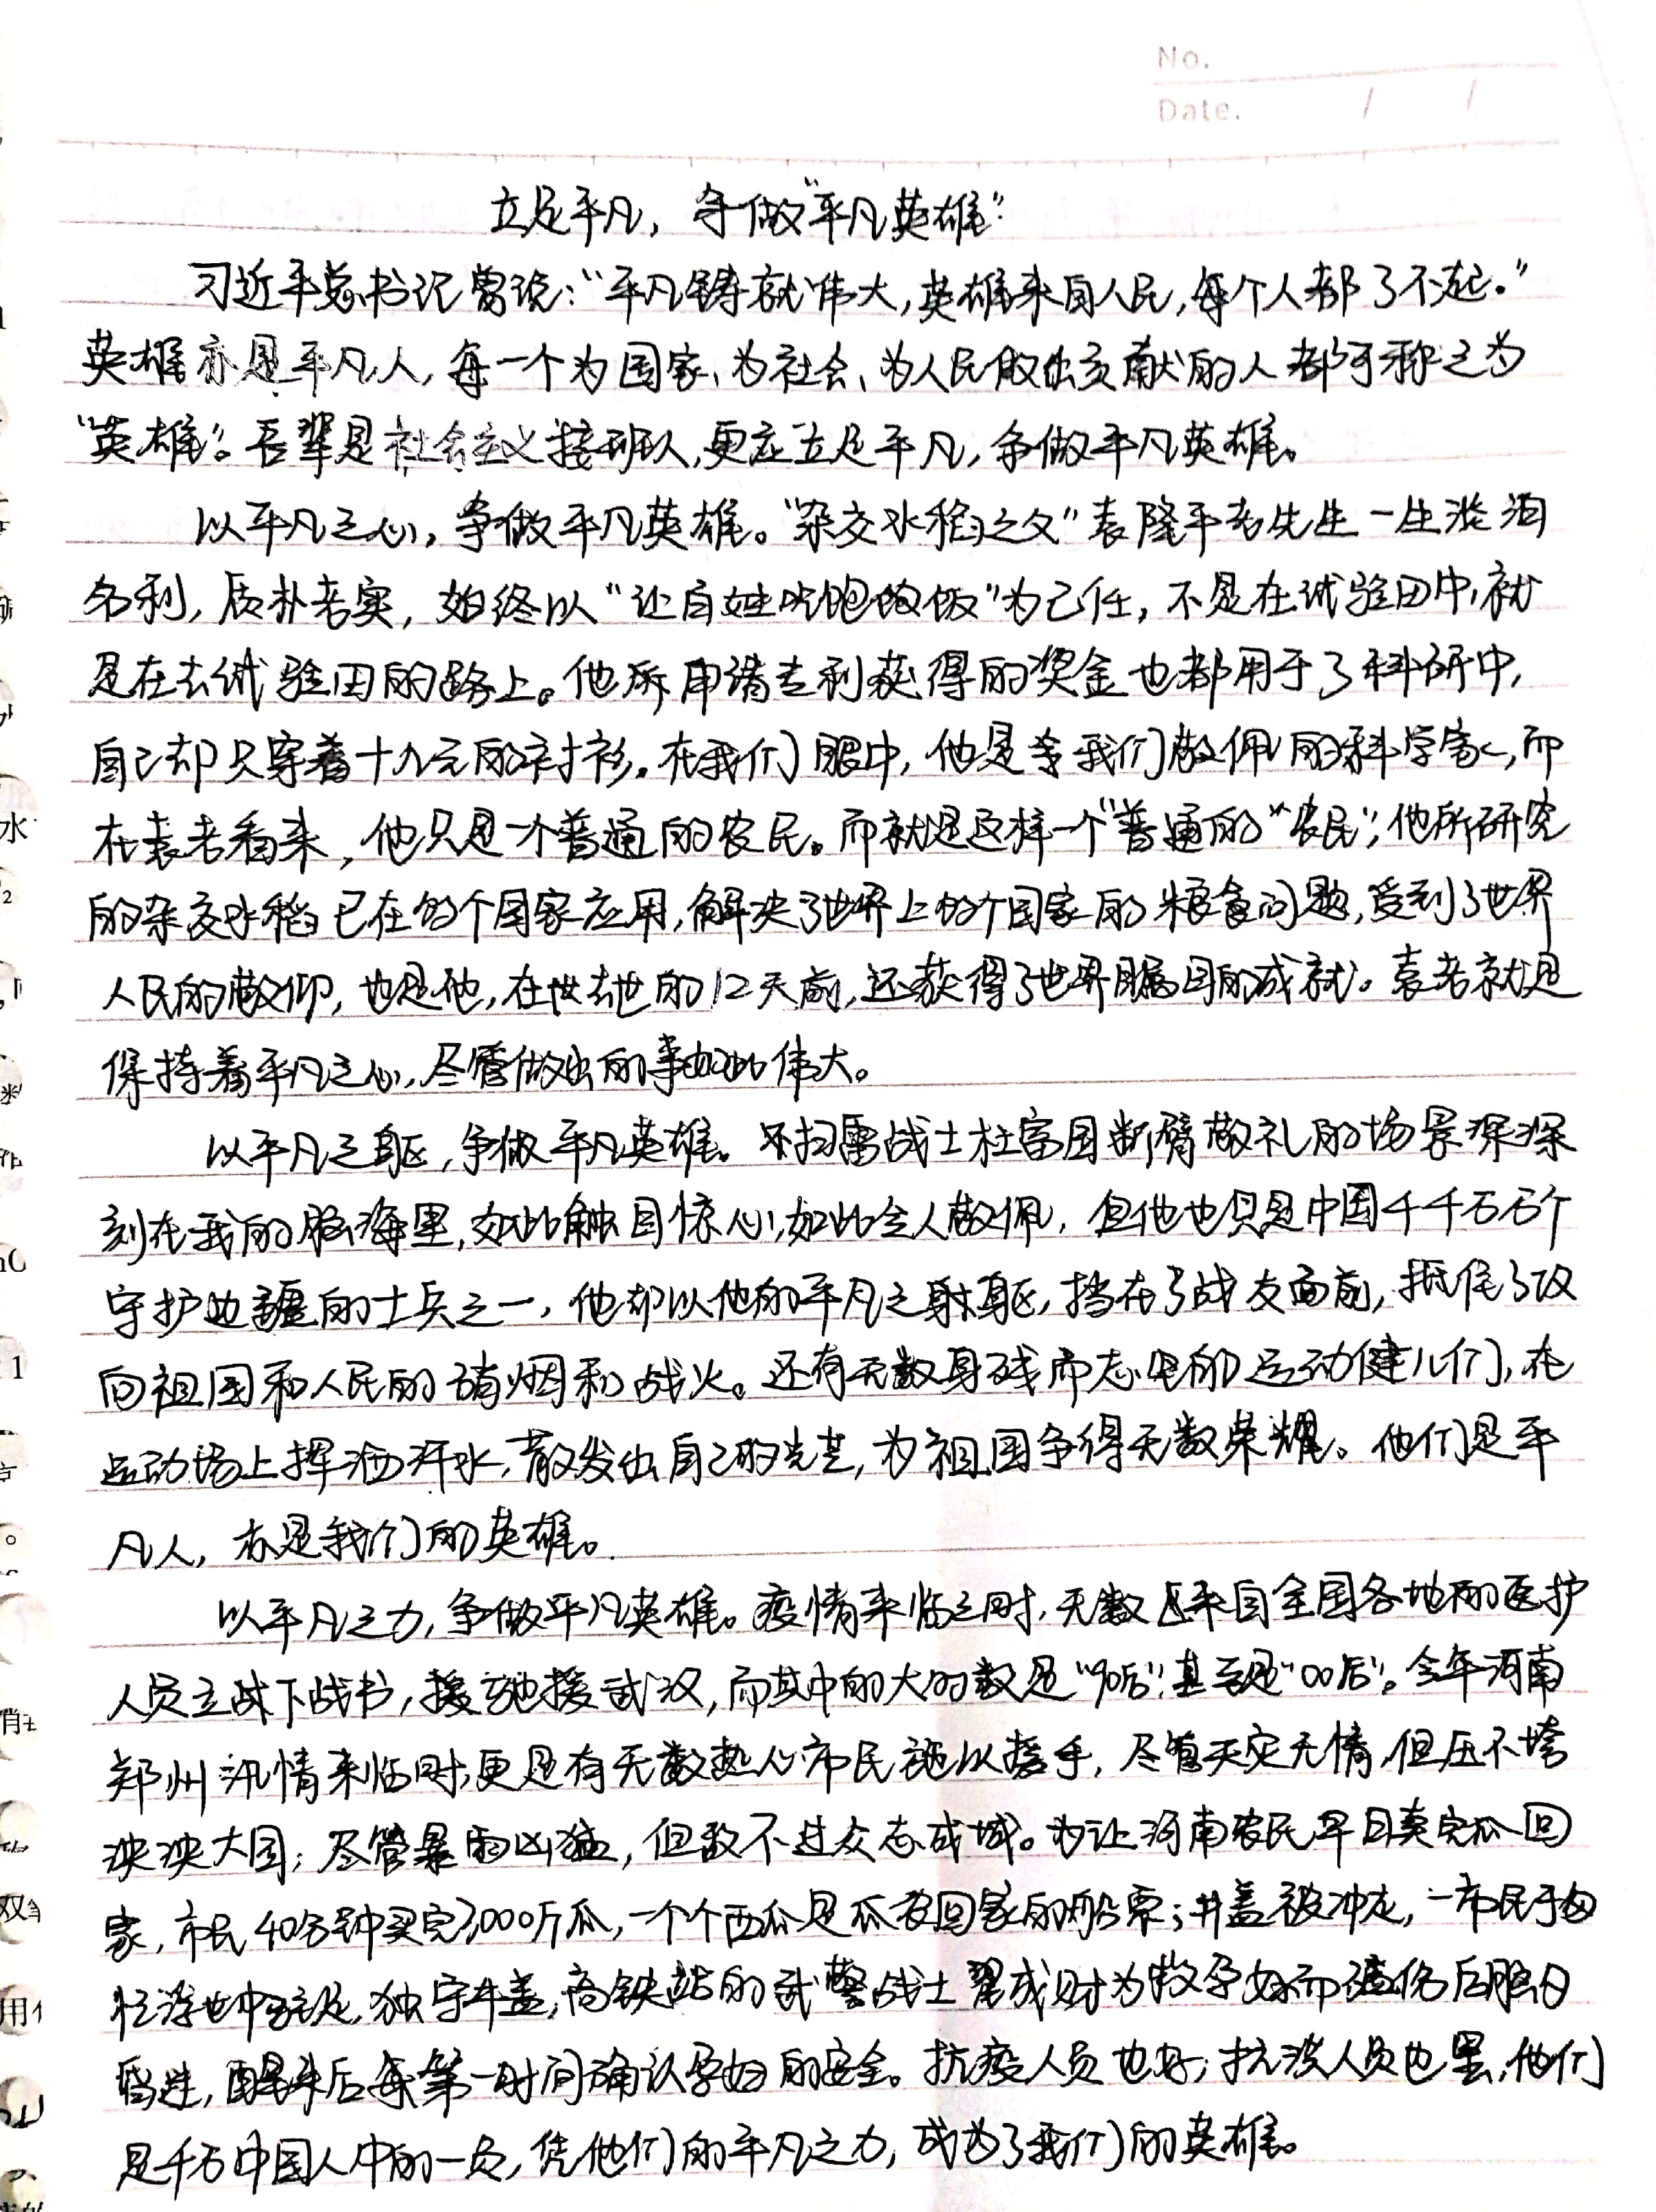 No.
Date. / /
立足平凡，争做“平凡英雄”
习近平总书记曾说：“平凡铸就伟大，英雄来自人民，每个人都了不起。”
英雄亦是平凡人，每一个为国家、为社会、为人民做出贡献的人都可称之为
“英雄”。吾辈是社会主义接班人，更应立足平凡，争做平凡英雄。
以平凡之心，争做平凡英雄。“杂交水稻之父”袁隆平老先生一生淡泊
名利，质朴老实，始终以“让百姓吃饱饭”为己任，不是在试验田中，就
是在去试验田的路上。他所申请专利获得的奖金也都用于了科研中，
自己却只穿着十九元的衬衫。在我们眼中，他是令我们敬佩的科学家，而
在袁老看来，他只是一个普通的农民。而就是这样一个“普通的“农民”，他所研究
的杂交水稻已在的个国家应用，解决了世界上的个国家的粮食问题，受到了世界
人民的敬仰，也是他，在去世的12天前，还获得了世界瞩目的成就。袁老就是
保持着平凡之心，尽管做出的事如此伟大。
以平凡之躯，争做平凡英雄。扫雷战士杜富国断臂敬礼的场景深深
刻在我的脑海里，如此触目惊心，如此令人敬佩，但他也只是中国千千万万个
守护边疆的士兵之一，他却以他的平凡之身躯，挡在了战友面前，抵住了攻
向祖国和人民的硝烟和战火。还有无数身残而志坚的运动健儿们，在
运动场上挥洒汗水，散发出自己的光芒，为祖国争得无数荣耀。他们是平
凡人，亦是我们的英雄。
以平凡之力，争做平凡英雄。疫情来临之时，无数来自全国各地的医护
人员立下战书，援武汉，而其中的大的数是“90后”，甚至是“00后”。今年河南
郑州汛情来临时，更是有无数热心市民施以援手，尽管天灾无情，但压不垮
泱泱大国；尽管暴雨凶猛，但敌不过众志成城。为让河南农民早日卖完瓜回
家，市民40分钟买完3000斤瓜，一个个西瓜是瓜农回家的船票；井盖被冲走，一市民于
中驻足，独守井盖，高铁站的武警战士翟成财为救孕妇而后
昏迷，醒来后第一时间确认孕妇的安全。抗疫人员也好，抗洪人员也罢，他们
是千万中国人中的一员，凭他们的平凡之力，成为了我们的英雄。